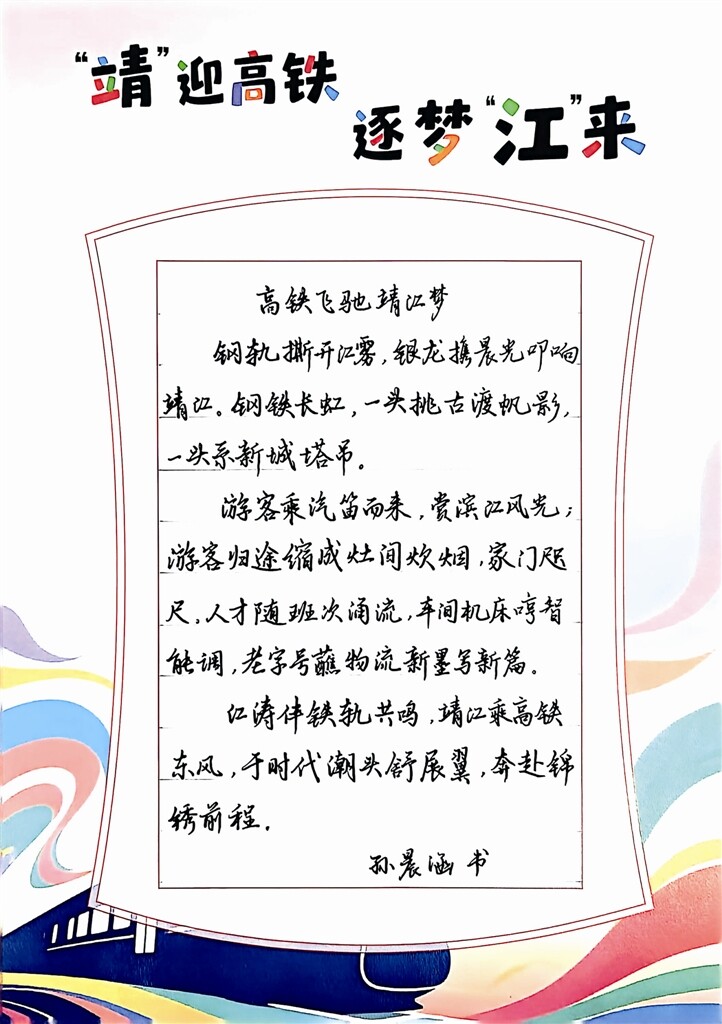 “靖”迎高铁
逐梦“江”来
高铁飞驰靖江梦
钢轨撕开江雾,银龙携晨光叩响
靖江。钢铁长虹,一头挑古渡帆影,
一头系新城塔吊。
游客乘汽笛而来,赏滨江风光;
游客归途缩成灶间炊烟,家门咫
尺。人才随班次涌流,车间机床哼智
能调,老字号蘸物流新墨写新篇。
江涛伴铁轨共鸣,靖江乘高铁
东风,于时代潮头舒展翼,奔赴锦
绣前程。
孙晨涵 书